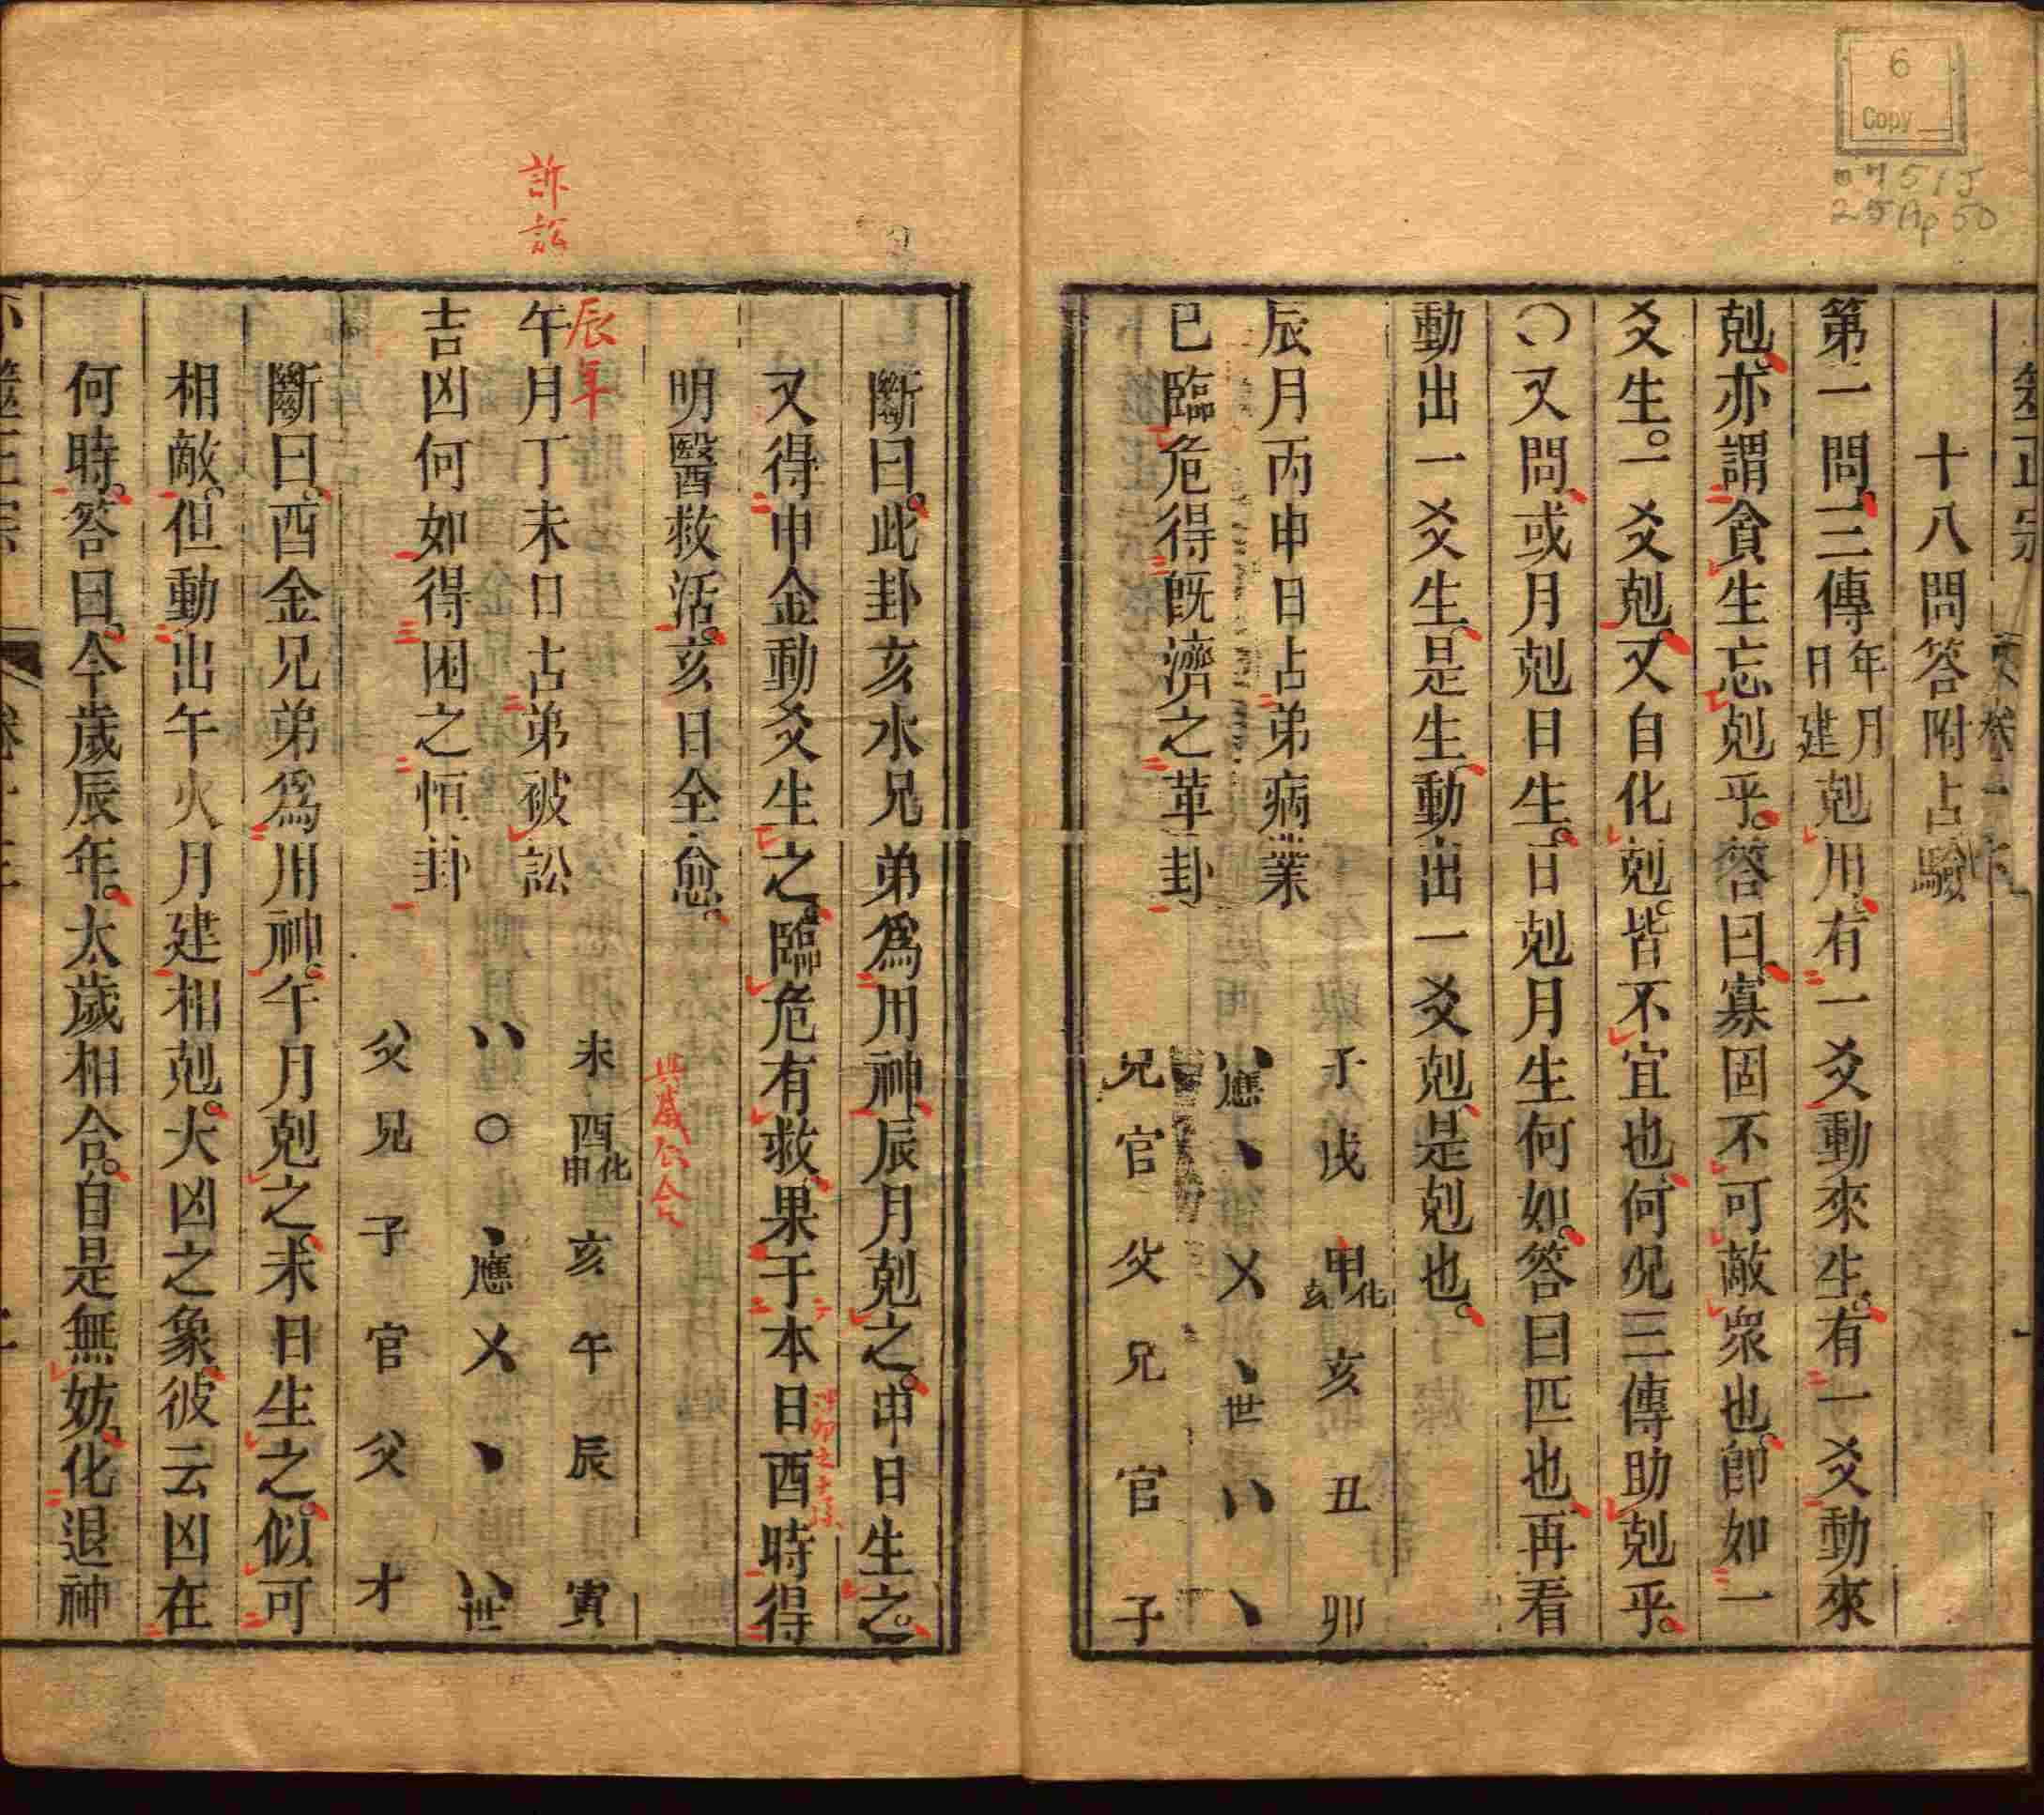 十八問答附占驗
第一問三傳年月日建剋用有一爻動來生有一爻動來
剋亦謂貪生忘剋乎答曰寡固不可敵衆也即如一
爻生一爻剋又自化剋皆不宜也何況三傳助剋乎
〇又問或月剋日生日剋月生何如答曰匹也再看
動出一爻生是生動出一爻剋是剋也
辰月丙申日占弟病業
已臨危得旣濟之革卦
子 戌 申化亥 亥 丑 卯
應 世
兄 官 父 兄 官 子
斷曰此卦亥水兄弟爲用神辰月剋之申日生之
又得申金動爻生之臨危有救果于本日酉時得
明醫救活亥日全愈
訴訟
辰年
午月丁未日占弟被訟
吉凶何如得困之恒卦
未 酉化申 亥 午 辰 寅
應 世
父 兄 子 官 父 才
斷曰酉金兄弟爲用神午月剋之未日生之似可
相敵但動出午火月建相剋大凶之象彼云凶在
何時答曰今歲辰年太歲相合自是無妨化退神
6
Copy